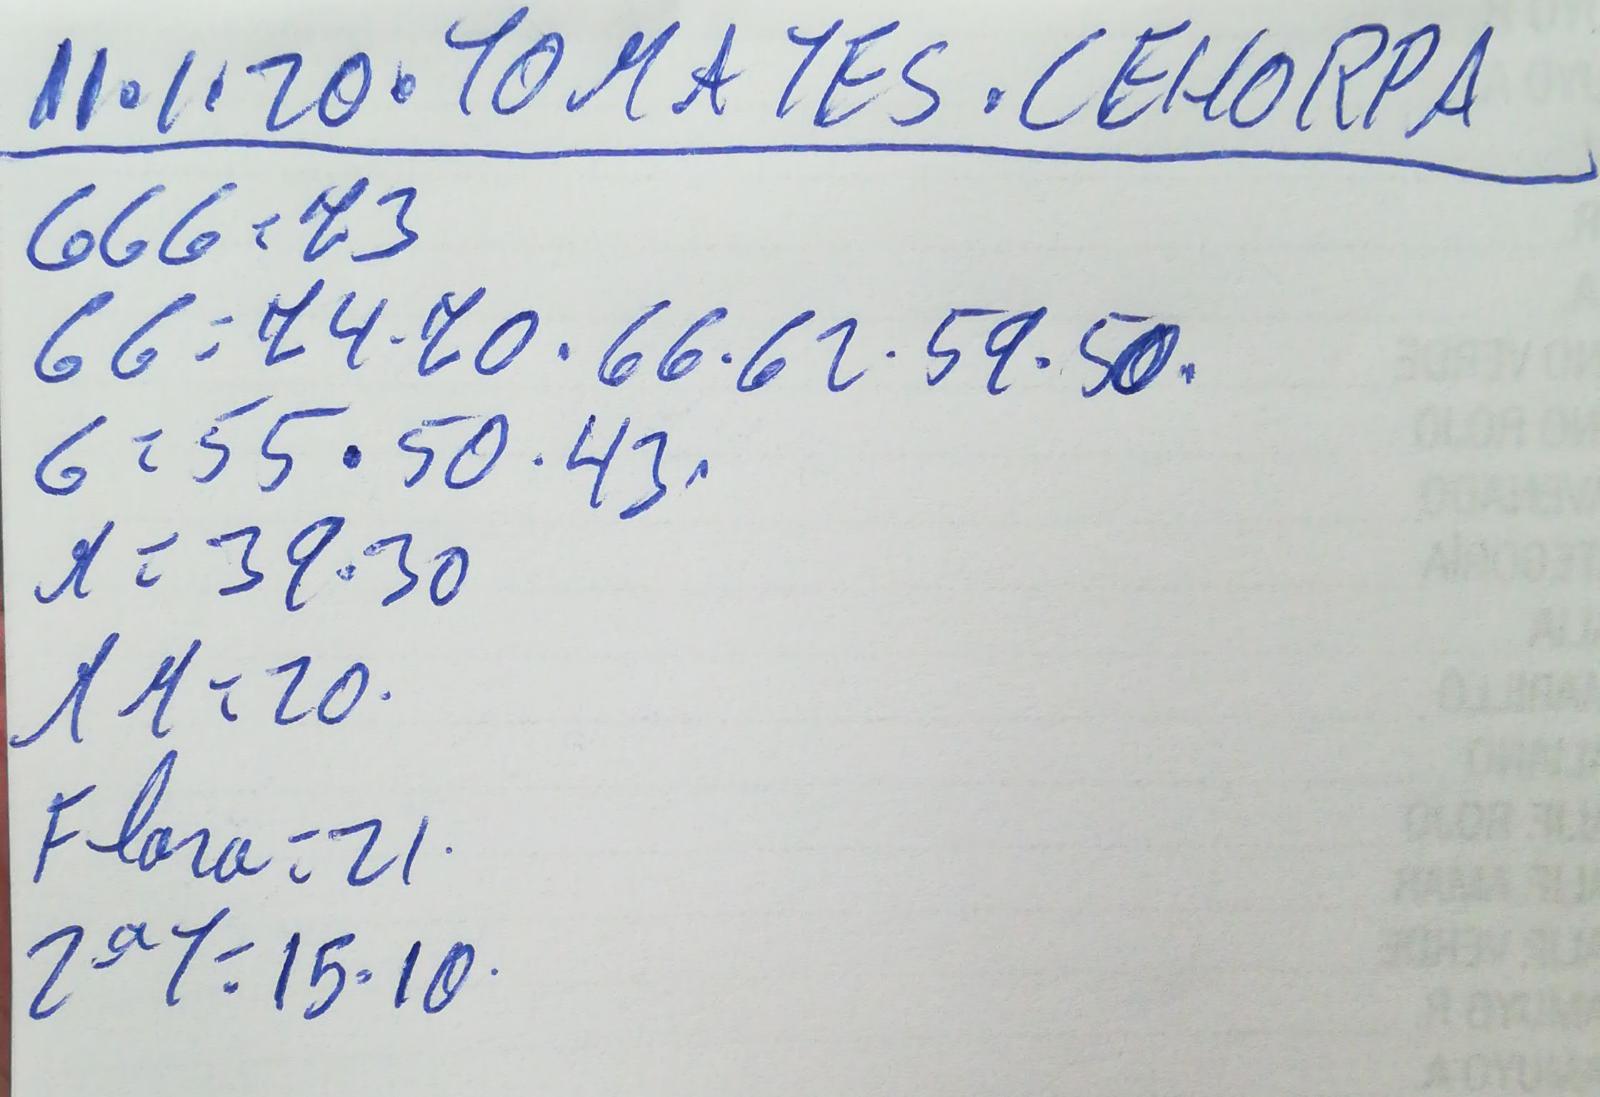 11.1.20.TOMATES.CEHORPA
GGG=73
GG=74.70.66.62.59.50.
G=55.50.43.
M=39.30
MM=20.
Flora=21.
2ªT=15.10.